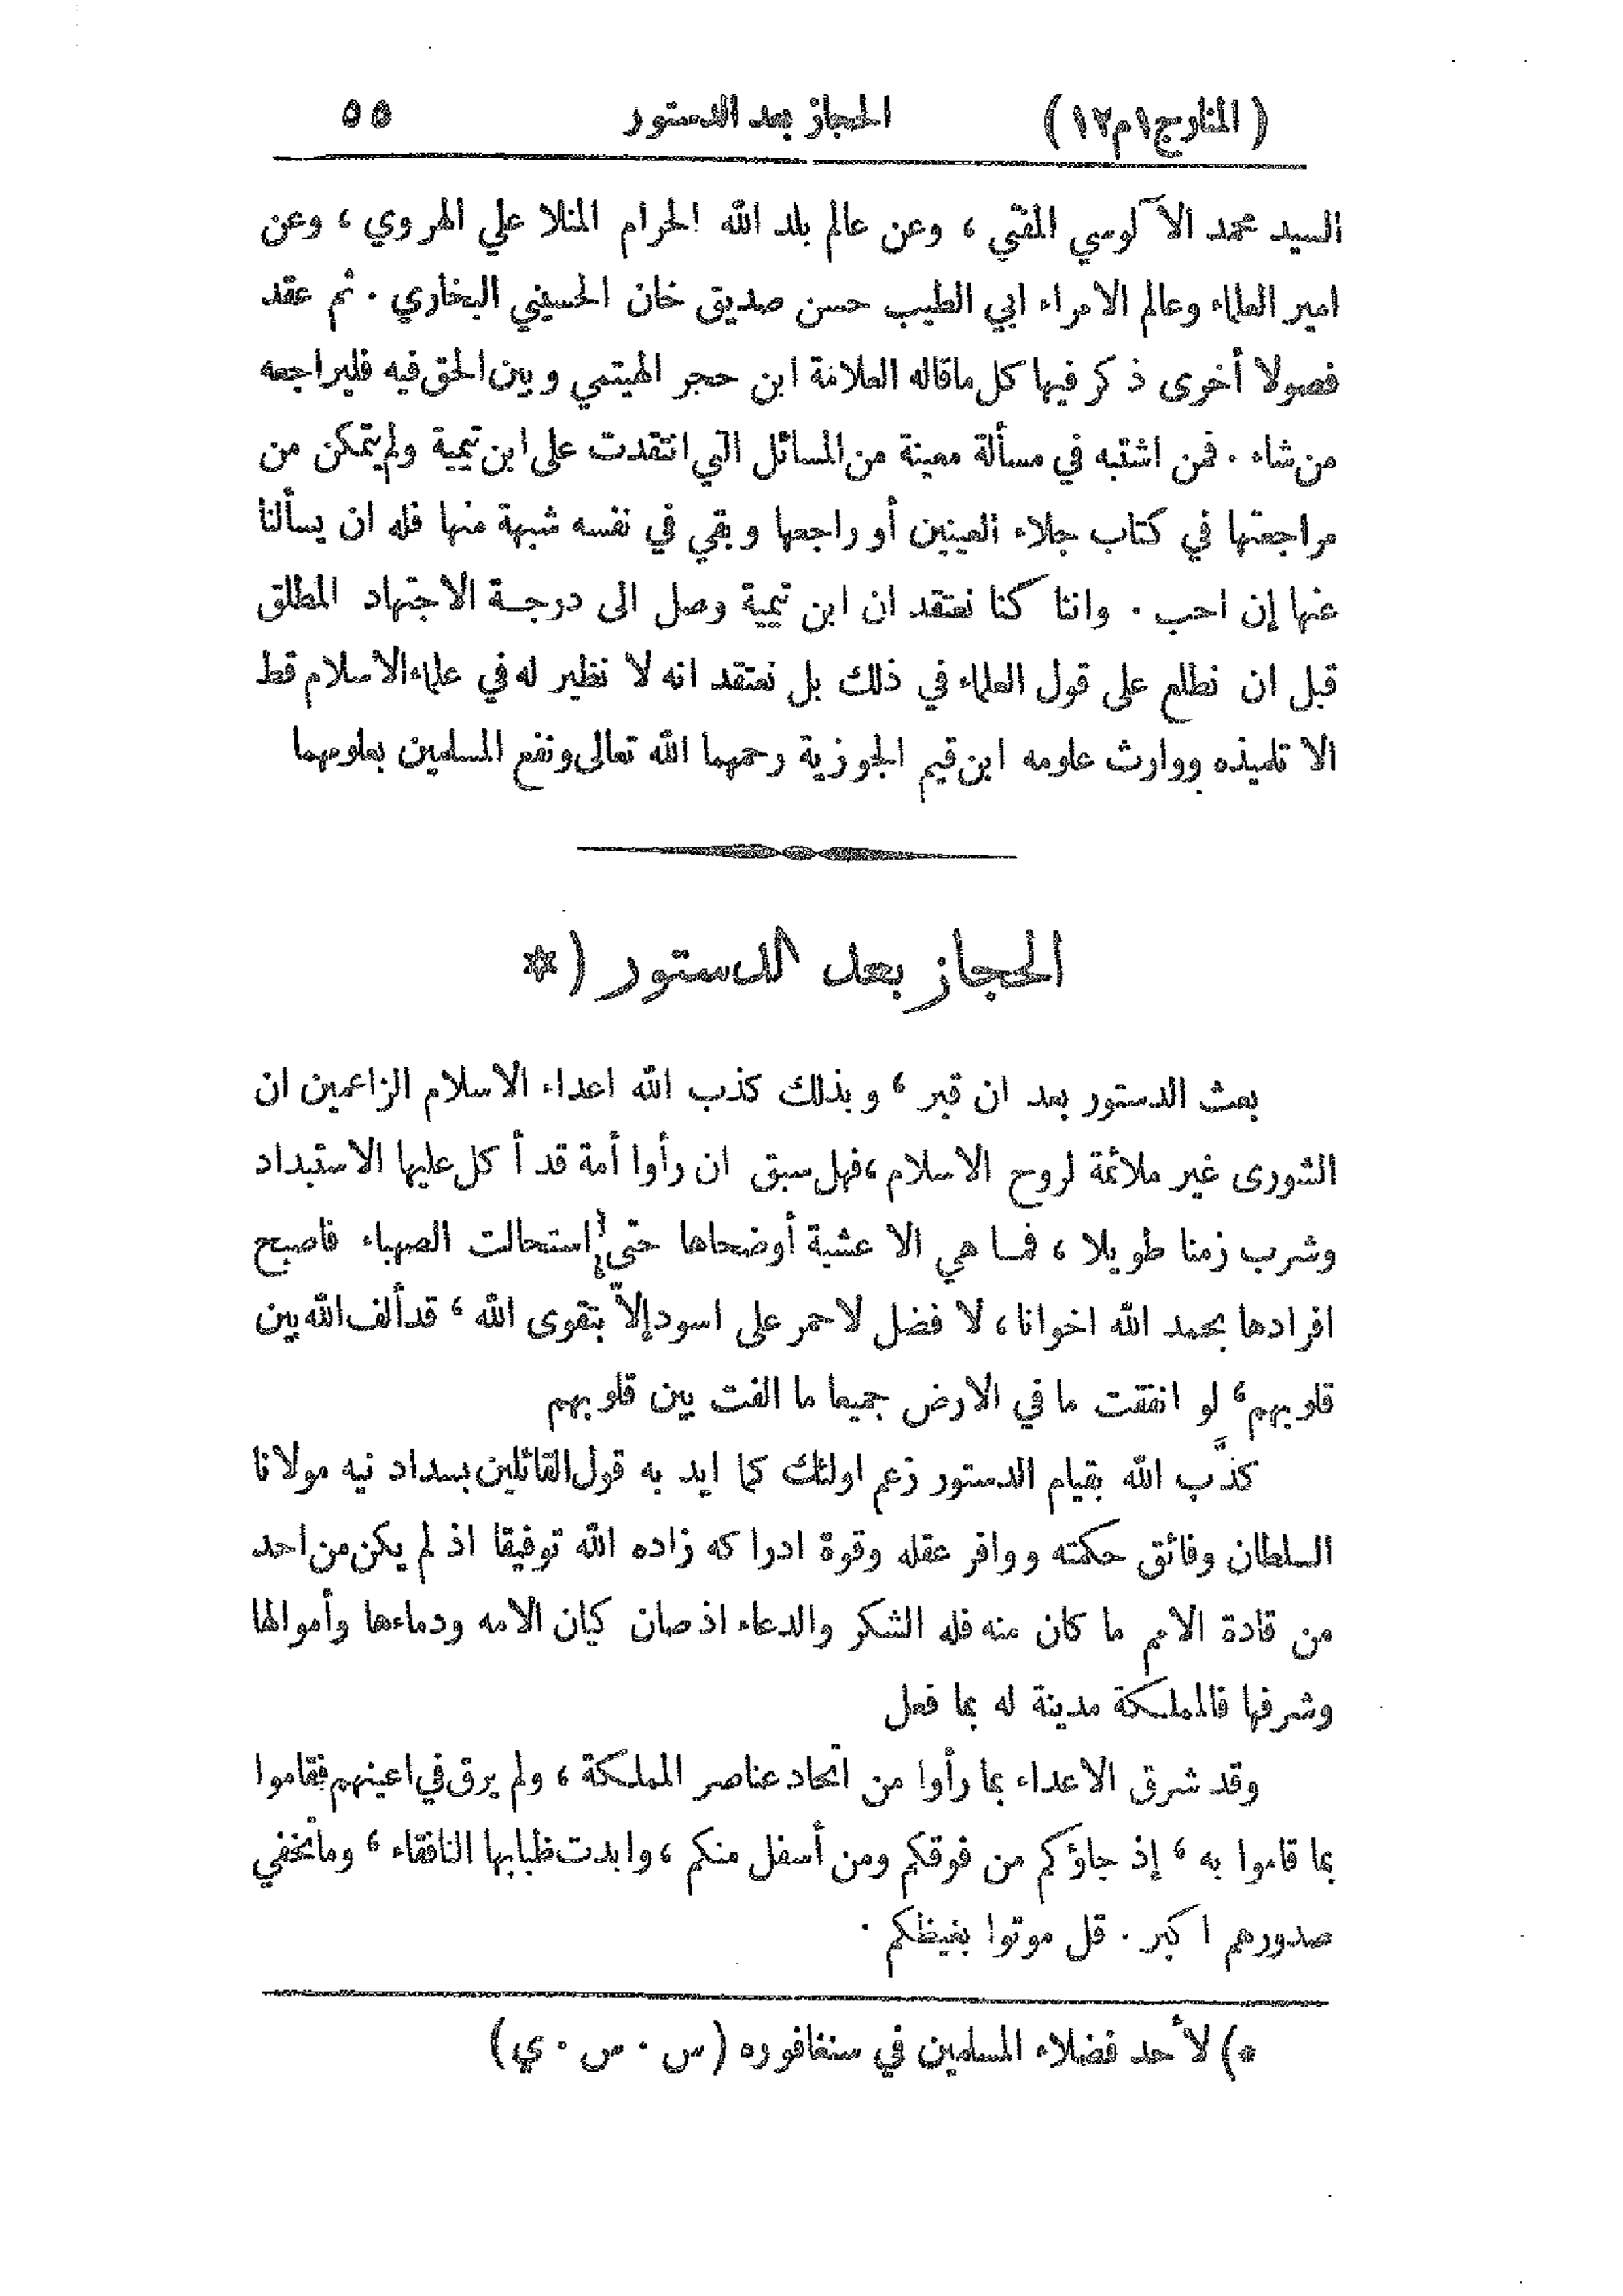 ( المنار ج ١ م ١٢ ) الحجاز بعد الدستور ٥٥
السيد محمد الآلوسي المفتي ، وعن عالم بلد الله الحرام المنلا علي الهروي ، وعن
امير العلماء وعالم الامراء ابي الطيب حسن صديق خان الحسيني البخاري . ثم عقد
فصولا أخرى ذكر فيها كل ماقاله العلامة ابن حجر الهيتمي وبين الحق فيه فليراجعه
من شاء . فمن اشتبه في مسألة معينة من المسائل التي انتقدت على ابن تيمية ولم يتمكن من
مراجعتها في كتاب جلاء العينين أو راجعها وبقي في نفسه شبهة منها فله ان يسألنا
عنها إن احب . واننا كنا نعتقد ان ابن تيمية وصل الى درجة الاجتهاد المطلق
قبل ان نطلع على قول العلماء في ذلك بل نعتقد انه لا نظير له في علماء الاسلام قط
الا تلميذه ووارث علومه ابن قيم الجوزية رحمهما الله تعالى ونفع المسلمين بعلومهما
الحجاز بعد الدستور (*
بعث الدستور بعد ان قبر ، وبذلك كذب الله اعداء الاسلام الزاعمين ان
الشورى غير ملائمة لروح الاسلام ، فهل سبق ان رأوا أمة قد أكل عليها الاستبداد
وشرب زمنا طويلا ، فما هي الا عشية أوضحاها حتى استحالت الصهباء فاصبح
افرادها بحمد الله اخوانا ، لا فضل لاحمر على اسود إلاّ بتقوى الله ، قد ألف الله بين
قلوبهم ، لو انفقت ما في الارض جميعا ما الفت بين قلوبهم
كذَّب الله بقيام الدستور زعم اولئك كما ايد به قول القائلين بسداد نيه مولانا
السلطان وفائق حكمته ووافر عقله وقوة ادراكه زاده الله توفيقا اذ لم يكن من احد
من قادة الامم ما كان منه فله الشكر والدعاء اذ صان كيان الامه ودماءها وأموالها
وشرفها فالمملكة مدينة له بما فعل
وقد شرق الاعداء بما رأوا من اتحاد عناصر المملكة ، ولم يرق في اعينهم فقاموا
بما قاموا به ، إذ جاؤكم من فوقكم ومن أسفل منكم ، وابدت ظبابها النافقاء ، وما تخفي
صدورهم اكبر . قل موتوا بغيظكم .
*) لأحد فضلاء المسلمين في سنغافوره ( س . س . ي )